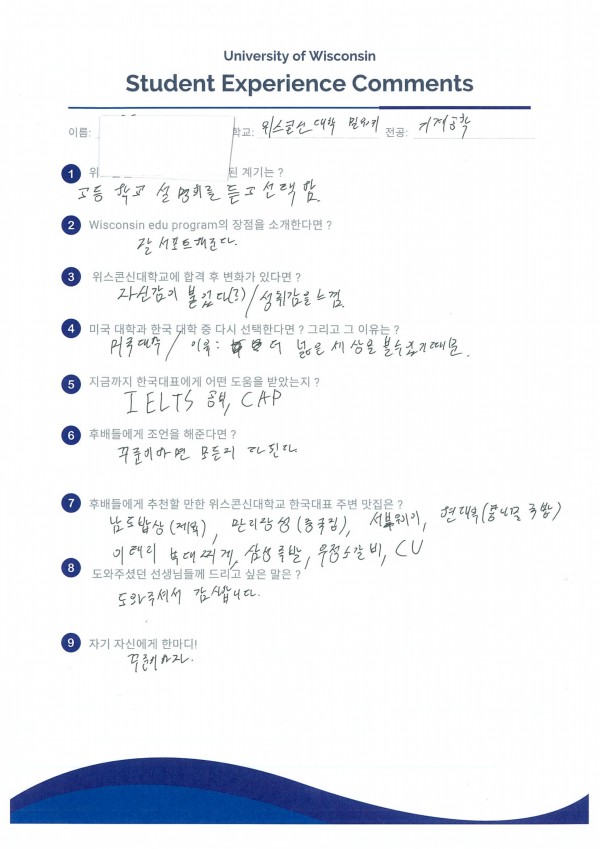 University of Wisconsin
Student Experience Comments
이름: 학교: 위스콘신 대학 밀워키 전공: 기계공학
1 위 된 계기는 ?
고등 학교 설명회를 듣고 선택 함.
2 Wisconsin edu program의 장점을 소개한다면 ?
잘 서포트해준다.
3 위스콘신대학교에 합격 후 변화가 있다면 ?
자신감이 붙었다(?) / 성취감을 느낌.
4 미국 대학과 한국 대학 중 다시 선택한다면 ? 그리고 그 이유는 ?
미국대학 / 이유: 더 넓은 세상을 볼수있기때문.
5 지금까지 한국대표에게 어떤 도움을 받았는지 ?
IELTS 공부, CAP
6 후배들에게 조언을 해준다면 ?
꾸준히하면 모든지 다 된다.
7 후배들에게 추천할 만한 위스콘신대학교 한국대표 주변 맛집은 ?
남도밥상 (제육), 만리장성 (중국집), 서브웨이, 현대옥
이태리 부대찌게, 삼성족발, 우정소갈비, CU
8 도와주셨던 선생님들께 드리고 싶은 말은 ?
도와주셔서 감사합니다.
9 자기 자신에게 한마디!
꾸준히하자.